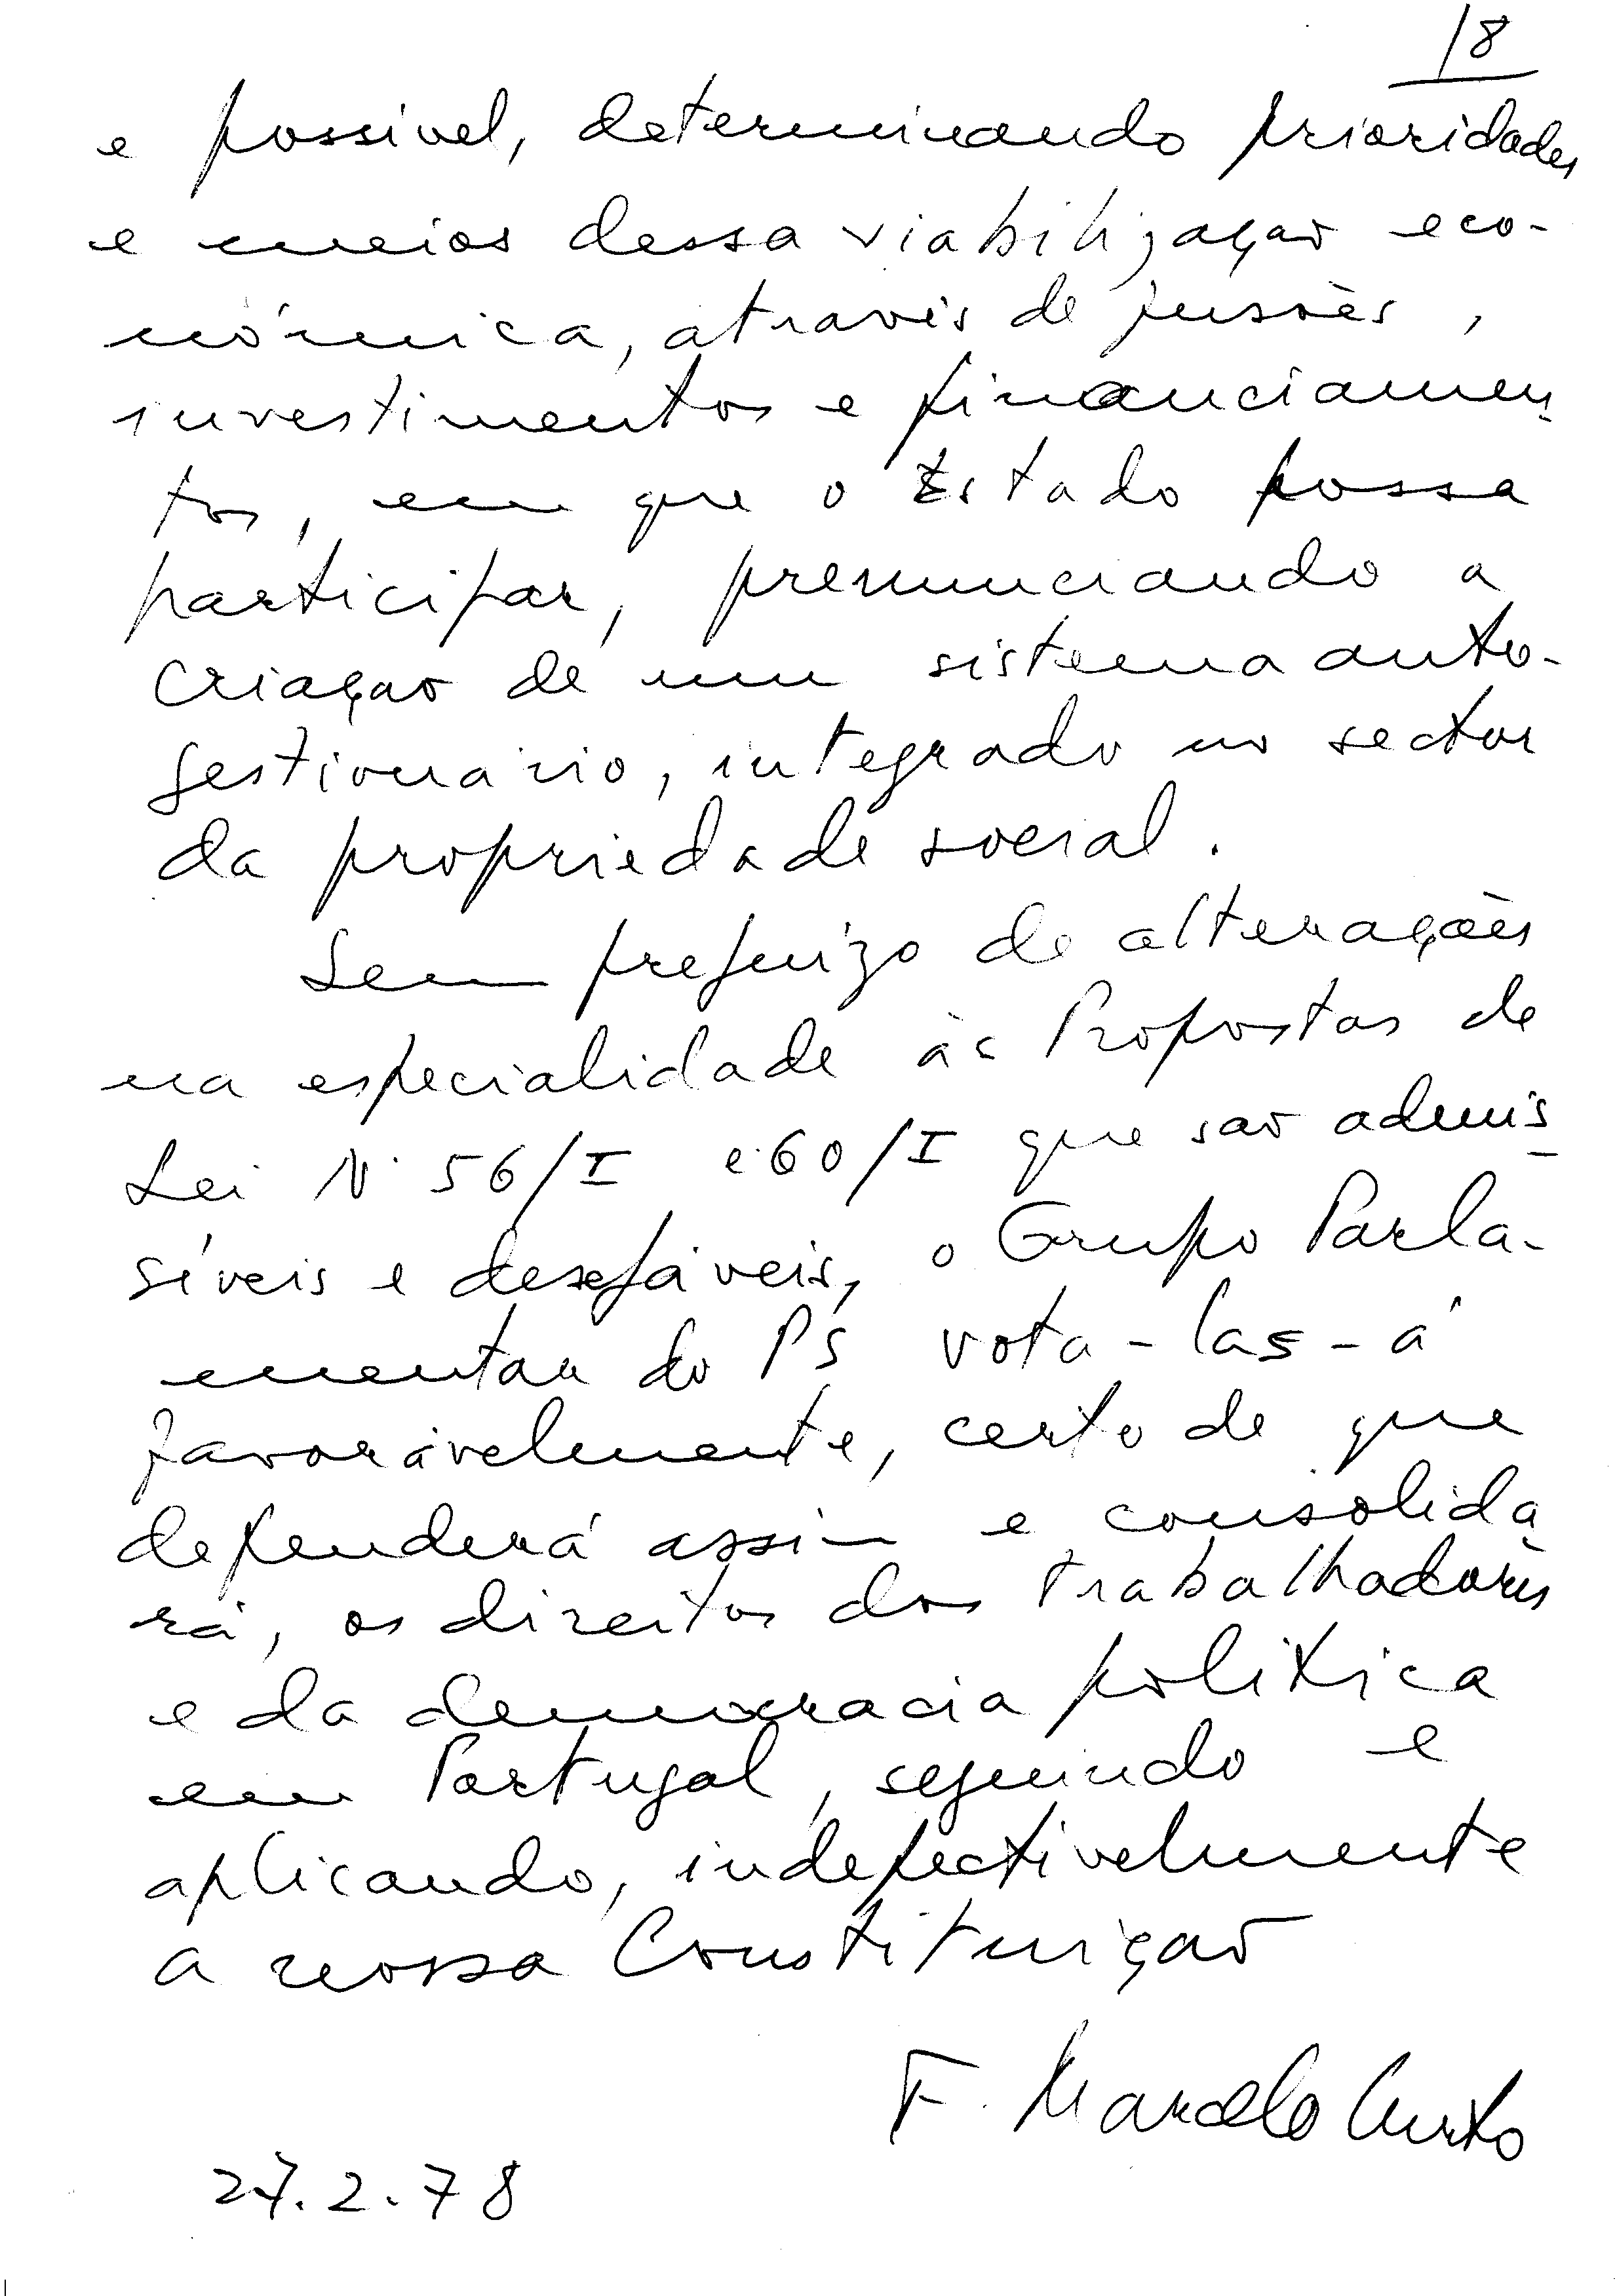 18
e possível, determinando prioridades
e meios dessa viabilização eco-
nómica, através de fusões,
investimentos e financiamen-
tos, em que o Estado possa
participar, prenunciando a
criação de um sistema auto-
gestionário, integrado no sector
da propriedade social.
Sem prejuízo de alterações
na especialidade às Propostas de
Lei Nº 56/I e 60/I que são admis-
síveis e desejáveis, o Grupo Parla-
mentar do PS votá-las-á
favoràvelmente, certo de que
defenderá assim e consolida
rá, os direitos dos trabalhadores
e da democracia política
em Portugal, seguindo e
aplicando, indefectivelmente
a nossa Constituição
F. Marcelo Curto
27.2.78